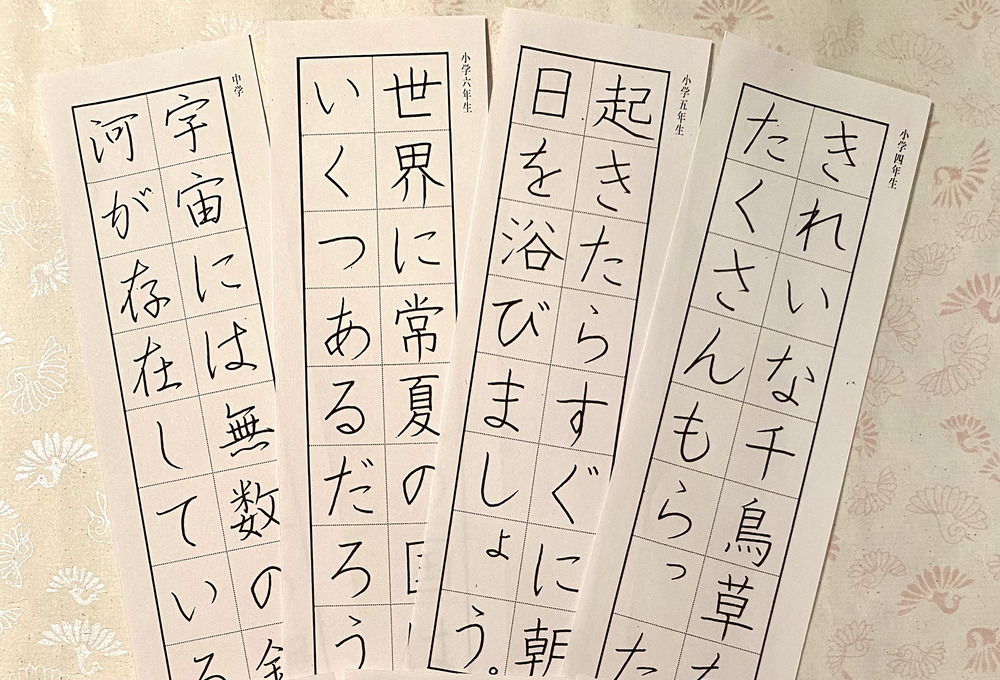 小学四年生
きれいな千鳥草
たくさんもらった
小学五年生
起きたらすぐに朝
日を浴びましょう。
小学六年生
世界に常夏の
いくつあるだろう
中学
宇宙には無数の銀
河が存在している